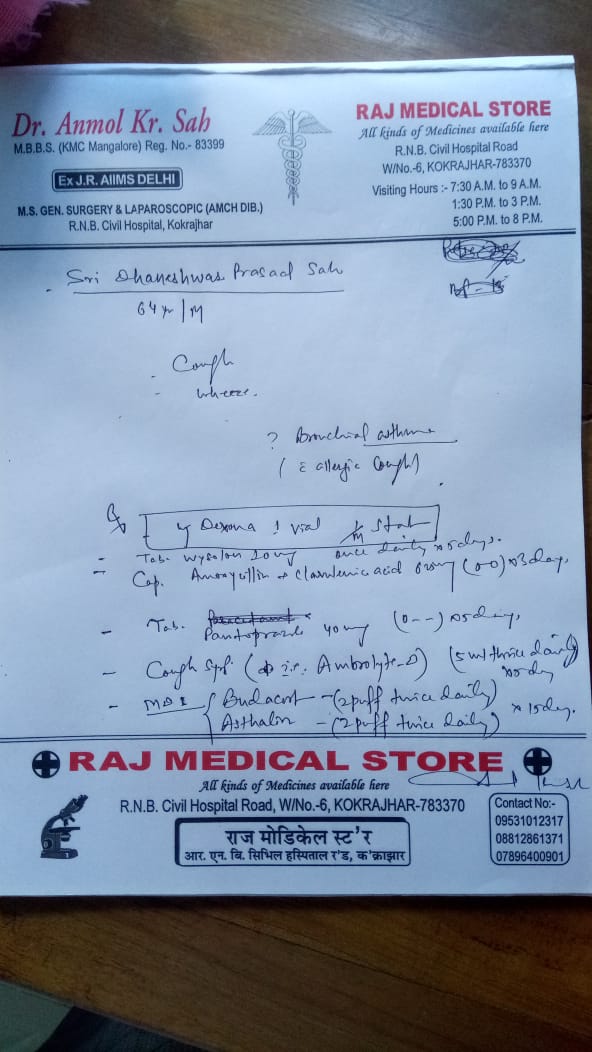 Dr. Anmol Kr. Sah
M.B.B.S. (KMC Mangalore) Reg. No.- 83399
Ex J.R. AIIMS DELHI
M.S. GEN. SURGERY & LAPAROSCOPIC (AMCH DIB.)
R.N.B. Civil Hospital, Kokrajhar
RAJ MEDICAL STORE
All kinds of Medicines available here
R.N.B. Civil Hospital Road
W/No.-6, KOKRAJHAR-783370
Visiting Hours :- 7:30 A.M. to 9 A.M.
1:30 P.M. to 3 P.M.
5:00 P.M. to 8 P.M.
Sri Dhaneshwar Prasad Sah
64 yr / M
- Cough
- wheeze.
? Bronchial asthma
( c̄ allergic Cough)
Dexona 1 vial stat
- Tab. Wysolon mg once daily x 5 days.
= Cap. Amoxycillin + Clavulenic acid 625mg x 3 day,
- Tab. Pantoprazole 40 mg (0--) x 5 days,
- Cough Syp. ( i.e. Ambrolyte-D) (5 ml thrice daily) x 5 day
- MDI Budacort - (2 puff twice daily)
Asthalin - (2 puff twice daily) x 15 day.
RAJ MEDICAL STORE
All kinds of Medicines available here
R.N.B. Civil Hospital Road, W/No.-6, KOKRAJHAR-783370
राज मेडिकेल स्ट'र
आर. एन. बि. सिभिल हस्पिताल र'ड, क'क्राझार
Contact No:-
09531012317
08812861371
07896400901